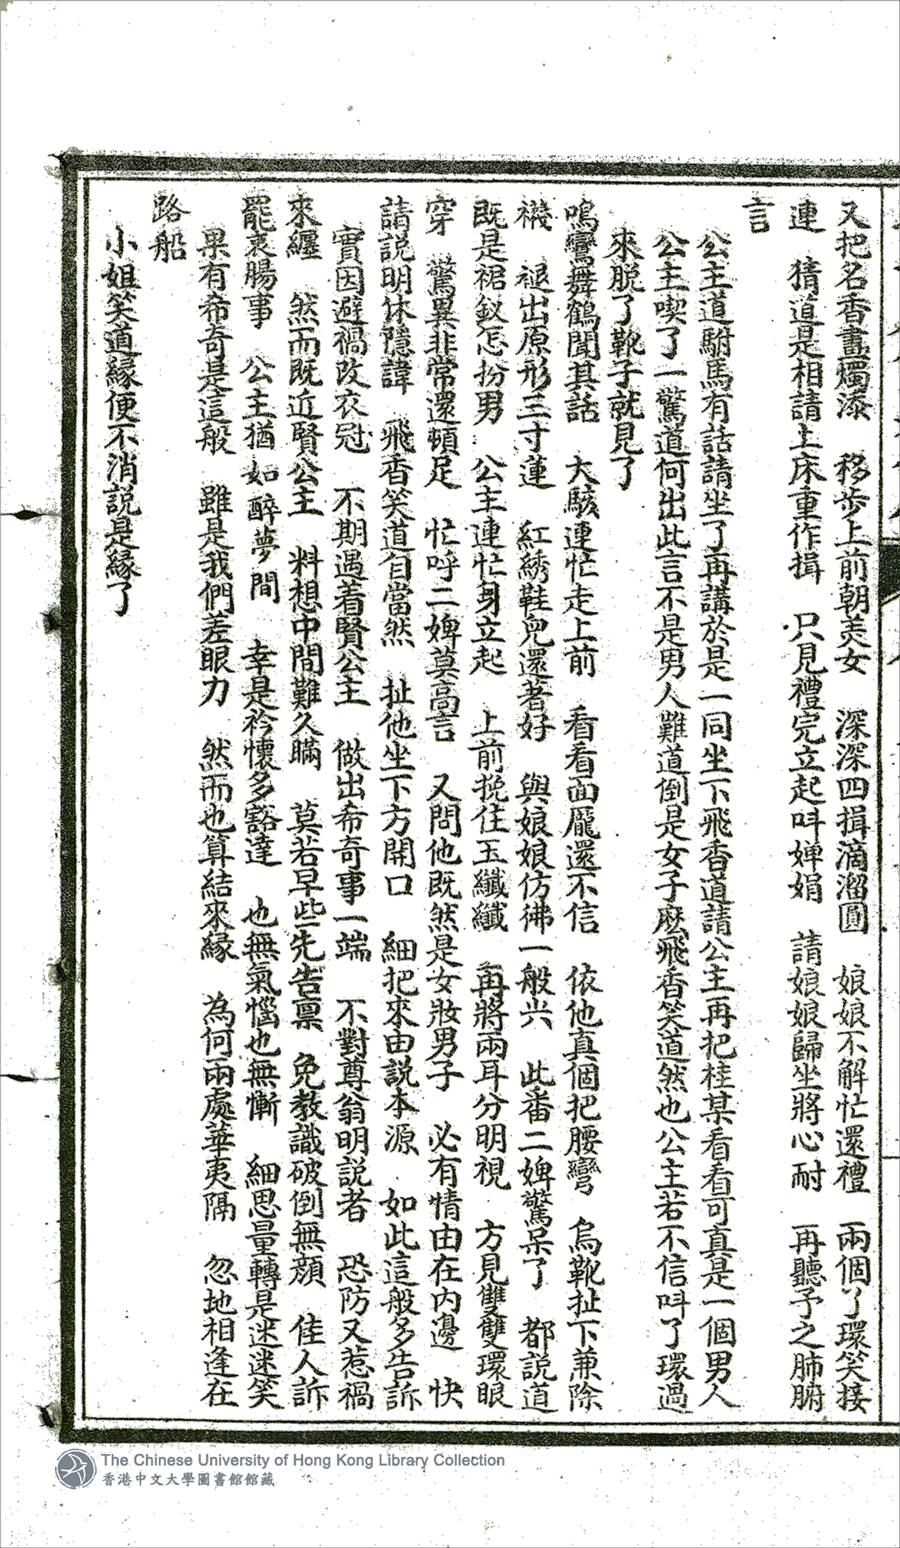 又把名香畫燭添　移步上前朝美女　深深四揖滴溜圓　娘娘不解忙還禮　兩個了環笑接
連　猜道是相請上床重作揖　只見禮完立起呌嬋娟　請娘娘歸坐將心耐　再聽予之肺腑
言
公主道駙馬有話請坐了再講於是一同坐下飛香道請公主再把桂某看看可真是一個男人
公主喫了一驚道何出此言不是男人難道倒是女子麽飛香笑道然也公主若不信呌了環過
來脫了靴子就見了
鳴鸞舞鶴聞其話　大駭連忙走上前　看看面龐還不信　依他真個把腰彎　烏靴扯下兼除
襪　褪出原形三寸蓮　紅綉鞋兒還著好　與娘娘仿彿一般尖　此番二婢驚呆了　都説道
既是裙釵怎扮男　公主連忙身立起　上前挽住玉纖纖　再將兩耳分明視　方見雙雙環眼
穿　驚異非常還頓足　忙呼二婢莫高言　又問他既然是女妝男子　必有情由在內邊　快
請説明休隱諱　飛香笑道自當然　扯他坐下方開口　細把來由説本源　如此這般多告訴
實因避禍改衣冠　不期遇着賢公主　做出希奇事一端　不對尊翁明説者　恐防又惹禍
來纏　然而既近賢公主　料想中間難久瞞　莫若早些先告禀　免教識破倒無顔　佳人訴
罷衷腸事　公主猶如醉夢間　幸是衿懷多豁達　也無氣惱也無慚　細思量轉是迷迷笑
果有希奇是這般　雖是我們差眼力　然而也算結來緣　為何兩處華夷隔　忽地相逢在
路船
小姐笑道緣便不消説是緣了
The Chinese University of Hong Kong Library Collection
香港中文大學圖書館館藏